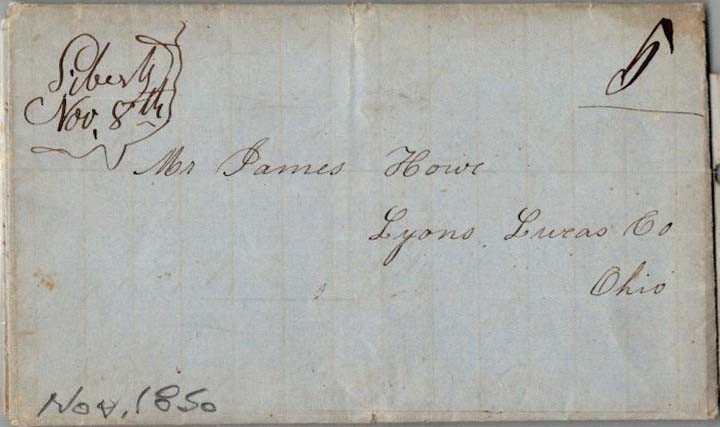 Liberty
Nov. 8th
5
Mr James Howe
Lyons Lucas Co
Ohio
Nov. 1850